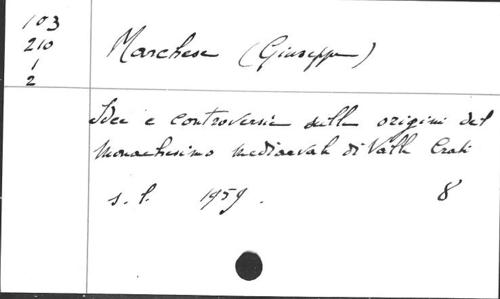 103
210
1
2
Marchese (Giuseppe)
Idee e controversie sulle origini del
monachesimo mediaevale di Valle Crati
s. l. 1959. 8